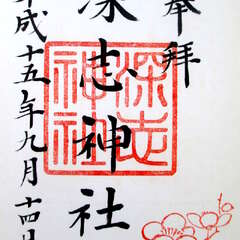 奉拝
深志神社
平成十五年九月十四日
深志
神社